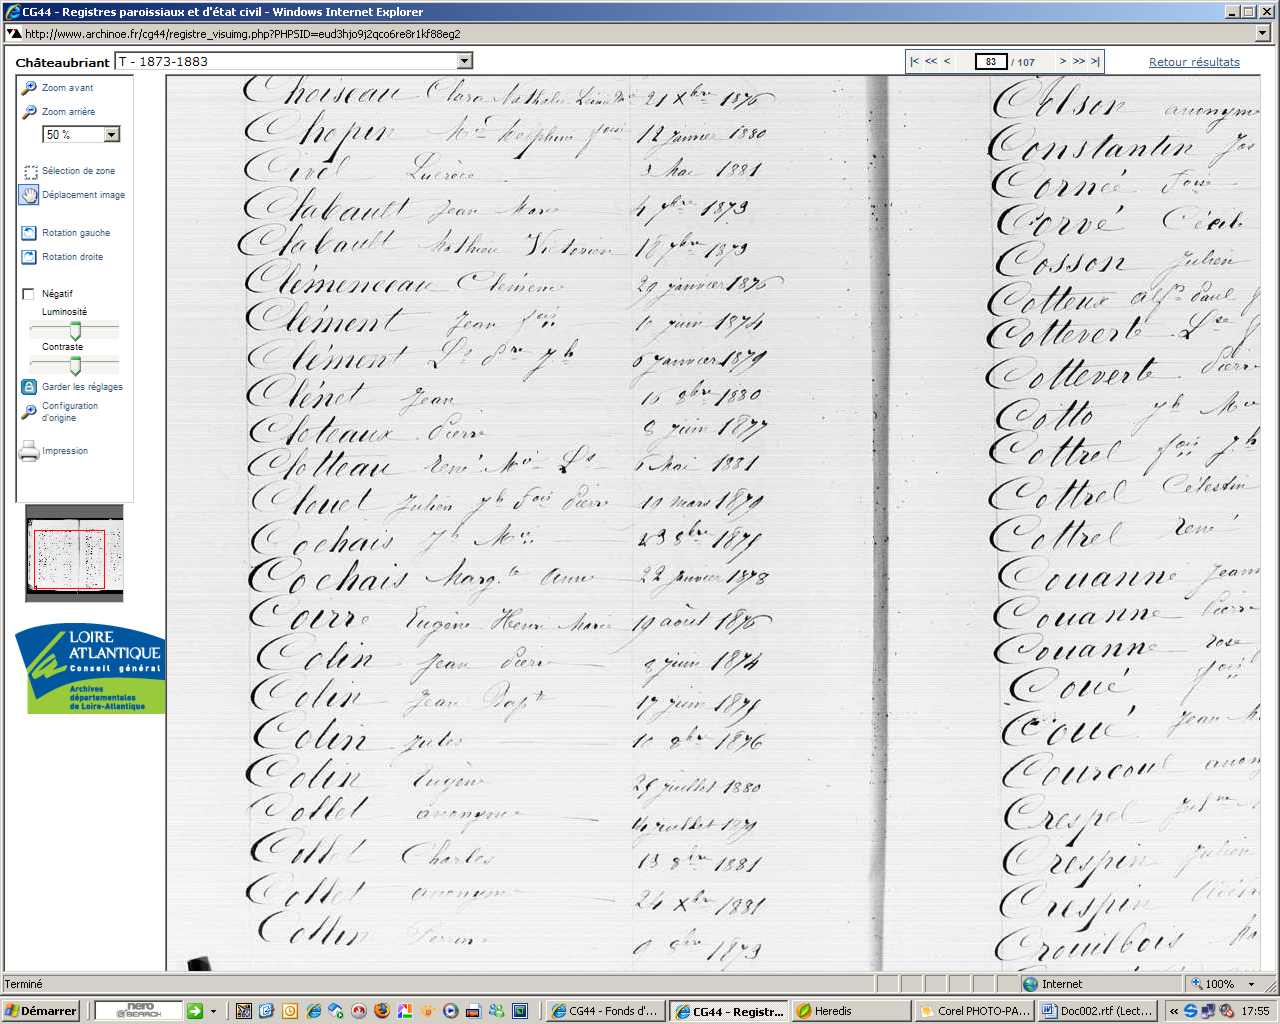 CG44 - Registres paroissiaux et d'état civil - Windows Internet Explorer
http://www.archinoe.fr/cg44/registre_visuimg.php?PHPSID=eud3hjo9j2qco6re8r1kf88eg2
Châteaubriant T - 1873-1883
|< << < 83 / 107 > >> >| Retour résultats
Zoom avant
Zoom arrière
50 %
Sélection de zone
Déplacement image
Rotation gauche
Rotation droite
Négatif
Luminosité
Contraste
Garder les réglages
Configuration
d'origine
Impression
LOIRE
ATLANTIQUE
Conseil général
Archives
départementales
de Loire-Atlantique
Choiseau Clara Nathalie 21 Xbre 1876
Chopin 12 janvier 1880
Civel Lucrèce 3 Mai 1881
Clabault Jean Marie 4 7bre 1873
Clabault Mathieu Victorien 18 7bre 1873
Clémenceau Clémence 29 janvier 1876
Clément Jean fois 10 juin 1874
Clément 6 janvier 1879
Clénet Jean 16 8bre 1880
Cloteaux Pierre 8 juin 1877
Clotteau rené Mie Ls 1 Mai 1881
Clouet Julien jh fois Pierre 19 mars 1879
Cochais jh Mie 23 8bre 1875
Cochais Marg.te Anne 22 Janvier 1878
Coirre Eugène Henri Marie 19 août 1876
Colin Jean Pierre 8 juin 1874
Colin Jean Bapt 17 juin 1875
Colin Jules 10 8bre 1876
Colin Eugène 25 juillet 1880
Collet anonyme 14 juillet 1879
Collet Charles 13 8bre 1881
Collet anonyme 24 Xbre 1881
Collin 9 8bre 1873
Colson anonyme
Constantin Jos
Cornée fois
Corvé Cécile
Cosson Julien
Cotteux Alf Paul
Cotteverte Lse
Cotteverte Pierre
Cotto jh Mie
Cottrel fois jh
Cottrel Célestin
Cottrel rené
Couanne Jean
Couanne Pierre
Couanne rose
Coué fois
Coué Jean M
Courcoul anon
Crespel
Crespin Julien
Crespin
Crouilbois Ma
Terminé Internet 100%
Démarrer nero SEARCH CG44 - Fonds d'... CG44 - Registr... Heredis Corel PHOTO-PA... Doc002.rtf (Lect... « 17:55